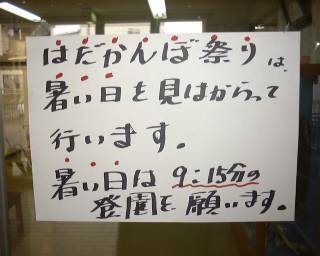 はだかんぼ祭りは、
暑い日を見はからって
行います。
暑い日は 9:15分の
登園を願います。